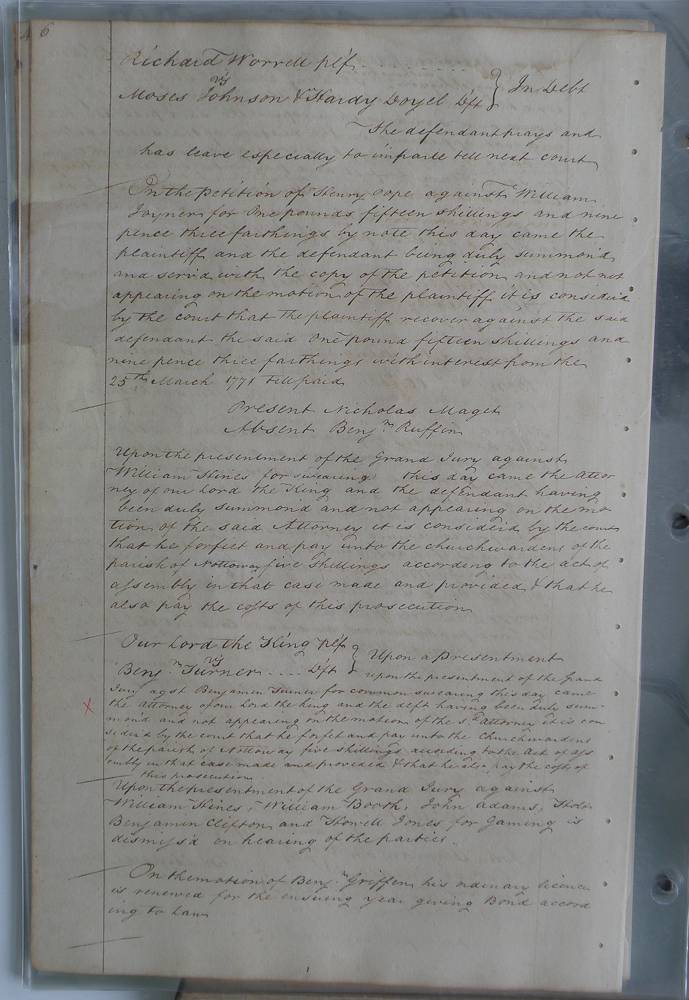 6
Richard Worrell plf
vs
Moses Johnson & Hardy Doyel Dft } In Debt
The defendant prays and
has leave especially to imparle till next court
On the Petition of Henry Pope against William
Joyner for One pounds fifteen shillings and nine
pence three farthings by note this day came the
plaintiff and the defendant being duly summond
and servd with the copy of the petition and not not
appearing on the motion of the plaintiff it is considrd
by the court that the plaintiff recover against the said
defendant the said One pound fifteen shillings and
nine pence three farthings with interest from the
25th March 1771 till paid
Present Nicholas Maget
Absent Benjn Ruffin
Upon the presentment of the Grand Jury against
William Hines for swearing this day came the attor
ney of our Lord the King and the defendant having
been duly summond and not appearing on the mo
tion of the said Attorney it is considerd by the court
that he forfiet and pay unto the churchwardens of the
parish of Nottoway five shillings according to the act of
assembly in that case made and provided & that he
also pay the costs of this prosecution
Our Lord the King plf
vs
Benjn Turner .... Dft } Upon a Presentment
upon the presentment of the grand
Jury agst Benjamin Turner for common swearing this day came
the attorney of our Lord the king and the deft having been duly sum-
mond and not appearing on the motion of the sd attorney it is con
siderd by the court that he forfet and pay unto the Churchwardens
of the parish of Nottoway five shillings according to the Act of ass
embly in that case made and provided & that he also pay the costs of
this prosecution.
Upon the presentment of the Grand Jury against
William Hines, William Booth, John Adams,
Benjamin Clifton and Howell Jones for Gaming is
dismissd on hearing of the parties.
On the motion of Benjn Griffen his ordinary licence
is renewed for the ensuing year giving Bond accord
ing to Law